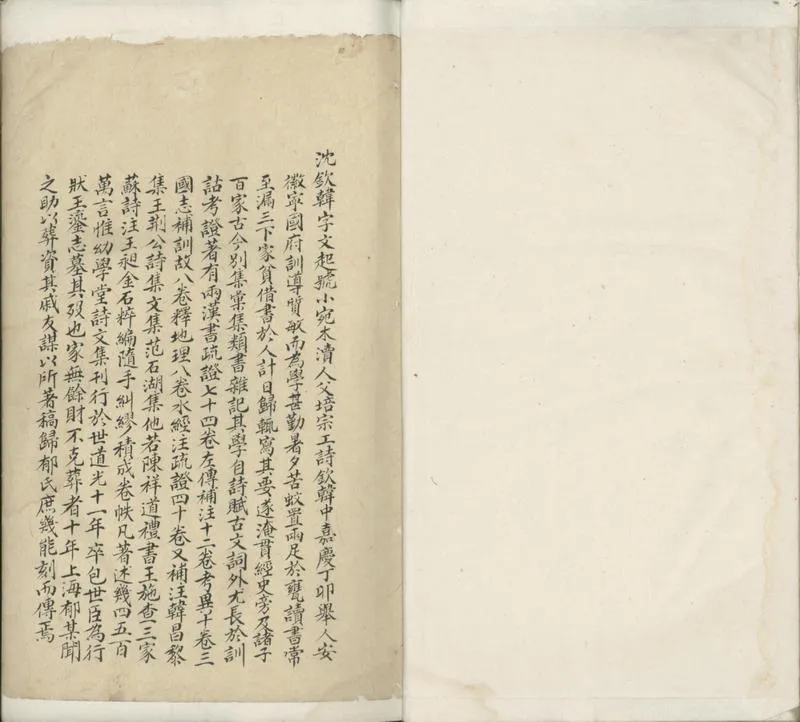 沈欽韓字文起號小宛木瀆人父培宗工詩欽韓中嘉慶丁卯舉人安
徽寧國府訓導質敏而為學甚勤暑夕苦蚊置兩足於甕讀書常
至漏三下家貧借書於人計日歸輒寫其要遂淹貫經史旁及諸子
百家古今別集彙集類書雜記其學自詩賦古文詞外尤長於訓
詁考證著有兩漢書疏證七十四卷左傳補注十二卷考異十卷三
國志補訓故八卷釋地理八卷水經注疏證四十卷又補注韓昌黎
集王荊公詩集文集范石湖集他若陳祥道禮書王施查三家
蘇詩注王昶金石粹編隨手糾繆積成卷帙凡著述幾四五百
萬言惟幼學堂詩文集刊行於世道光十一年卒包世臣為行
狀王鎏志墓其歿也家無餘財不克葬者十年上海郁某聞
之助以葬資其戚友謀以所著稿歸郁氏庶幾能刻而傳焉